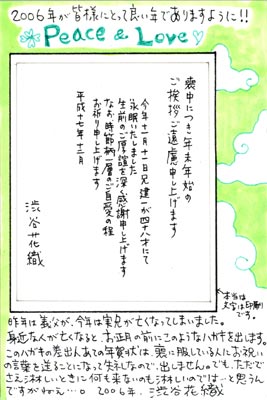 ２００６年が皆様にとって良い年でありますように!!
Peace & Love
喪中につき年末年始の
ご挨拶ご遠慮申し上げます
今年十一月十一日兄 建一が四十八才にて
永眠いたしました
生前のご厚誼を深く感謝申し上げます
なお 時節柄一層のご自愛の程
お祈り申し上げます
平成十七年十二月
渋谷花織
本当は
文字は印刷
です。
昨年は義父が、今年は実兄が亡くなってしまいました。
身近な人が亡くなると、お正月の前にこのようなハガキを出します。
このハガキの差出人あての年賀状は、喪に服している人にお祝い
の言葉を送ることになって失礼なので、出しません。でも、ただで
さえ淋しいときに何も来ないのも淋しいのでは…と思うん
ですがねえ…。2006年、渋谷花織